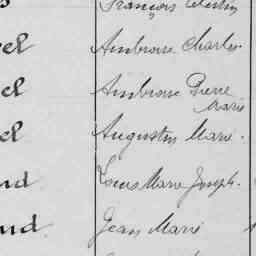 François Célestin
el Ambroise Charles.
el Ambroise Pierre
Marie
el Augustin Marie.
nd Louis Marie Joseph.
nd. Jean Marie